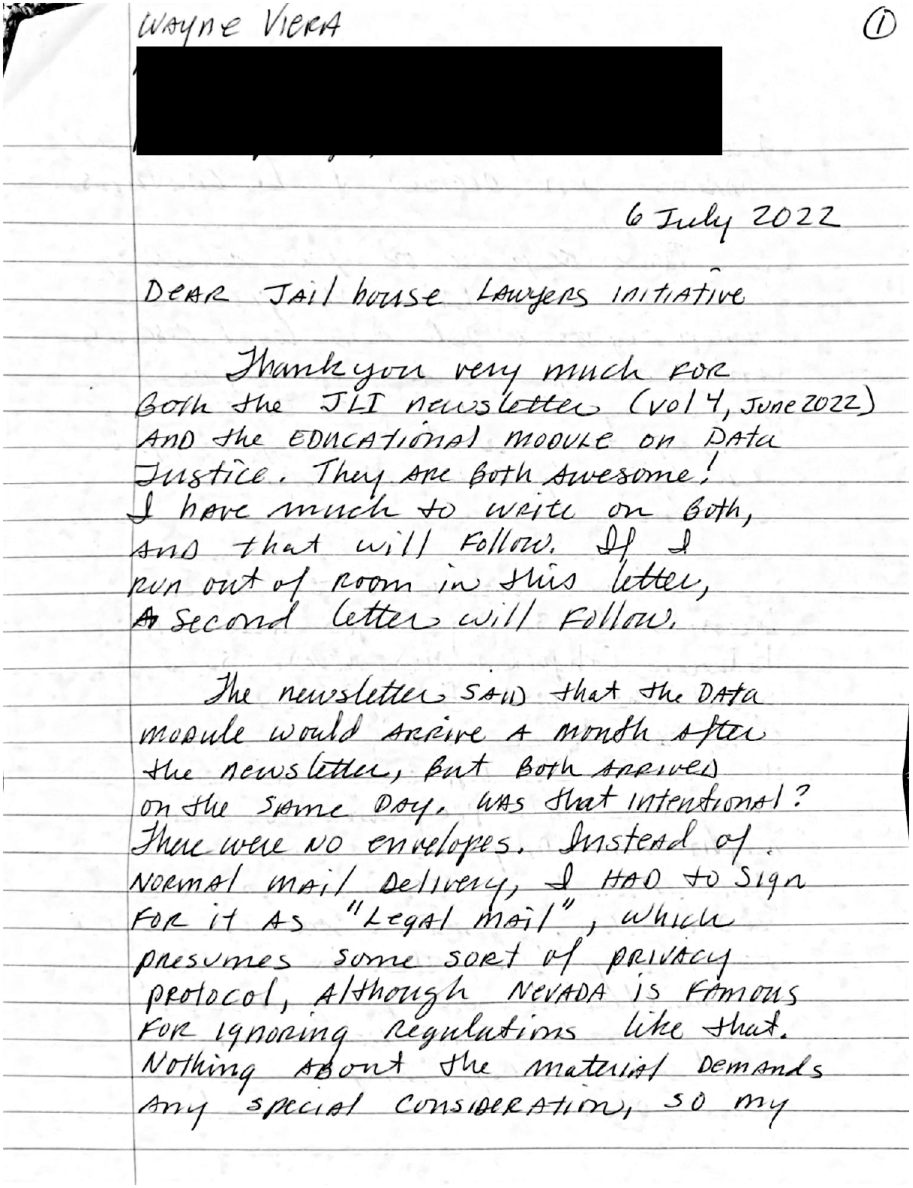 Wayne Viera
①
6 July 2022
Dear Jailhouse Lawyers Initiative
Thank you very much for
both the JLI newsletter (vol 4, June 2022)
and the educational module on Data
Justice. They are both awesome!
I have much to write on both,
and that will follow. If I
run out of room in this letter,
a second letter will follow.
The newsletter said that the Data
module would arrive a month after
the newsletter, but both arrived
on the same day. Was that intentional?
There were no envelopes. Instead of
normal mail delivery, I had to sign
for it as "Legal Mail", which
presumes some sort of privacy
protocol, although Nevada is famous
for ignoring regulations like that.
Nothing about the material demands
any special consideration, so my